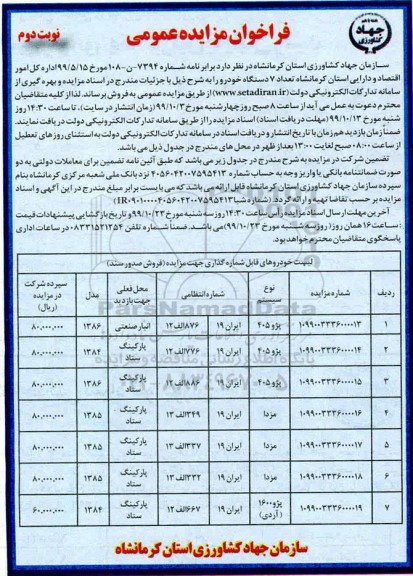 جهاد کشاورزی
فراخوان مزایده عمومی
نوبت دوم
سازمان جهاد کشاورزی استان کرمانشاه در نظر دارد برابر نامه شماره ۷۳۹۴-ن-۱۰۸ مورخ ۹۹/۵/۱۵ اداره کل امور
اقتصاد و دارایی استان کرمانشاه تعداد ۷ دستگاه خودرو را به شرح ذیل با جزئیات مندرج در اسناد مزایده و بهره گیری از
سامانه تدارکات الکترونیکی دولت (www.setadiran.ir) از طریق مزایده عمومی به فروش برساند. لذا از کلیه متقاضیان
محترم دعوت به عمل می آید از ساعت ۸ صبح روز چهارشنبه مورخ ۹۹/۱۰/۳ (زمان انتشار در سایت)، تا ساعت ۱۴:۳۰ روز
شنبه مورخ ۹۹/۱۰/۱۳ (مهلت دریافت اسناد) اسناد مزایده را از طریق سامانه تدارکات الکترونیکی دولت دریافت نمایند.
ضمناً زمان بازدید هم زمان با تاریخ انتشار و دریافت اسناد در سامانه تدارکات الکترونیکی دولت به استثنای روزهای تعطیل
از ساعت ۰۸:۰۰ صبح لغایت ۱۳:۰۰ بعد از ظهر در محل های مندرج در جدول ذیل می باشد.
تضمین شرکت در مزایده به شرح مندرج در جدول زیر می باشد که طبق آئین نامه تضمین برای معاملات دولتی به دو
صورت ضمانتنامه بانکی یا واریز وجه به حساب شماره ۴۰۵۶۰۴۲۰۰۷۵۹۵۴۱۳ نزد بانک ملی شعبه مرکزی کرمانشاه بنام
سپرده سازمان جهاد کشاورزی استان کرمانشاه قابل ارائه می باشد که می بایست برابر مبلغ مندرج در این آگهی و اسناد
مزایده بر حسب تقاضا تهیه و ارائه گردد.
آخرین مهلت ارسال اسناد مزایده رأس ساعت ۱۴:۳۰ روز سه شنبه مورخ ۹۹/۱۰/۲۳ و تاریخ بازگشایی پیشنهادات قیمت
ساعت ۱۶ همان روز (روز سه شنبه مورخ ۹۹/۱۰/۲۳) می باشد. ضمناً شماره تلفن ۰۸۳۳۱۵۲۱۲۵۴ در ساعات اداری
پاسخگوی متقاضیان محترم خواهد بود.
لیست خودروهای قابل شماره گذاری جهت مزایده (فروش صدور سند)
ردیف شماره مزایده نوع سیستم شماره انتظامی محل فعلی جهت بازدید مدل سپرده شرکت در مزایده (ریال)
۱ ۱۰۹۹۰۰۳۳۳۶۰۰۰۰۱۳ پژو ۴۰۵ ایران ۱۹ ۸۷۶الف۱۲ انبار صنعتی ۱۳۸۶ ۸۰،۰۰۰،۰۰۰
۲ ۱۰۹۹۰۰۳۳۳۶۰۰۰۰۱۴ پژو ۴۰۵ ایران ۱۹ ۷۷۶الف۱۲ پارکینگ ستاد ۱۳۸۴ ۸۰،۰۰۰،۰۰۰
۳ ۱۰۹۹۰۰۳۳۳۶۰۰۰۰۱۵ پژو ۴۰۵ ایران ۱۹ ۸۸۶الف۱۲ پارکینگ ستاد ۱۳۸۶ ۸۰،۰۰۰،۰۰۰
۴ ۱۰۹۹۰۰۳۳۳۶۰۰۰۰۱۶ مزدا ایران ۱۹ ۳۴۹الف۱۳ پارکینگ ستاد ۱۳۸۵ ۸۰،۰۰۰،۰۰۰
۵ ۱۰۹۹۰۰۳۳۳۶۰۰۰۰۱۷ مزدا ایران ۱۹ ۳۳۷الف۱۳ پارکینگ ستاد ۱۳۸۵ ۸۰،۰۰۰،۰۰۰
۶ ۱۰۹۹۰۰۳۳۳۶۰۰۰۰۱۸ مزدا ایران ۱۹ ۳۳۲الف۱۳ پارکینگ ستاد ۱۳۸۵ ۸۰،۰۰۰،۰۰۰
۷ ۱۰۹۹۰۰۳۳۳۶۰۰۰۰۱۹ پژو ۱۶۰۰ (آردی) ایران ۱۹ ۶۶۷الف۱۲ پارکینگ ستاد ۱۳۸۴ ۶۰،۰۰۰،۰۰۰
سازمان جهاد کشاورزی استان کرمانشاه